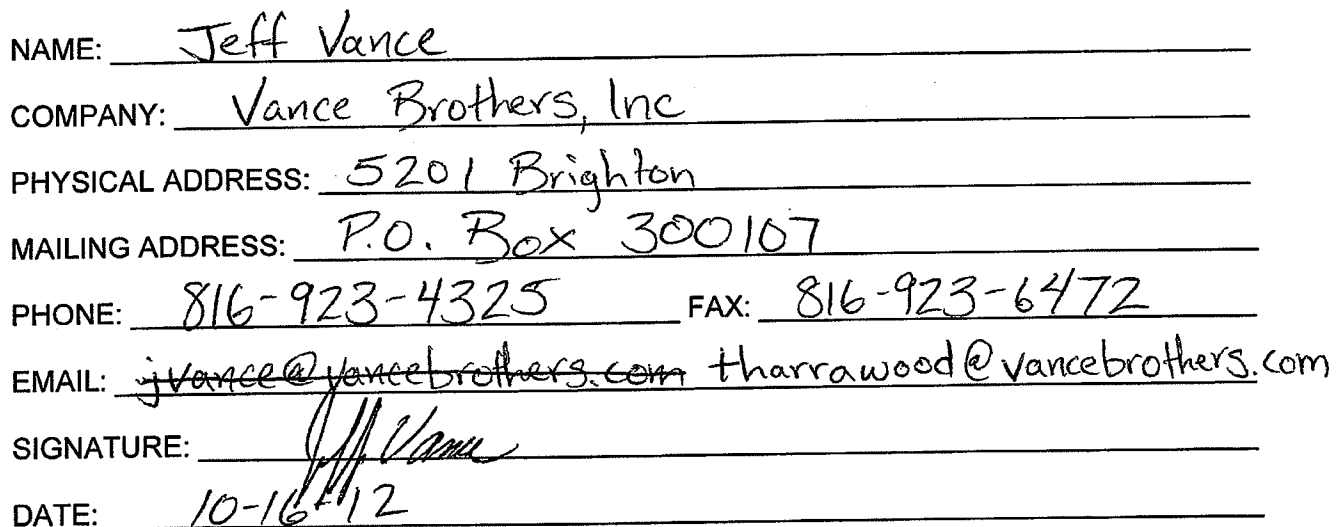 NAME: Jeff Vance
COMPANY: Vance Brothers, Inc
PHYSICAL ADDRESS: 5201 Brighton
MAILING ADDRESS: P.O. Box 300107
PHONE: 816-923-4325 FAX: 816-923-6472
EMAIL: jvance@vancebrothers.com tharrawood@vancebrothers.com
SIGNATURE: Jeff Vance
DATE: 10-16-12